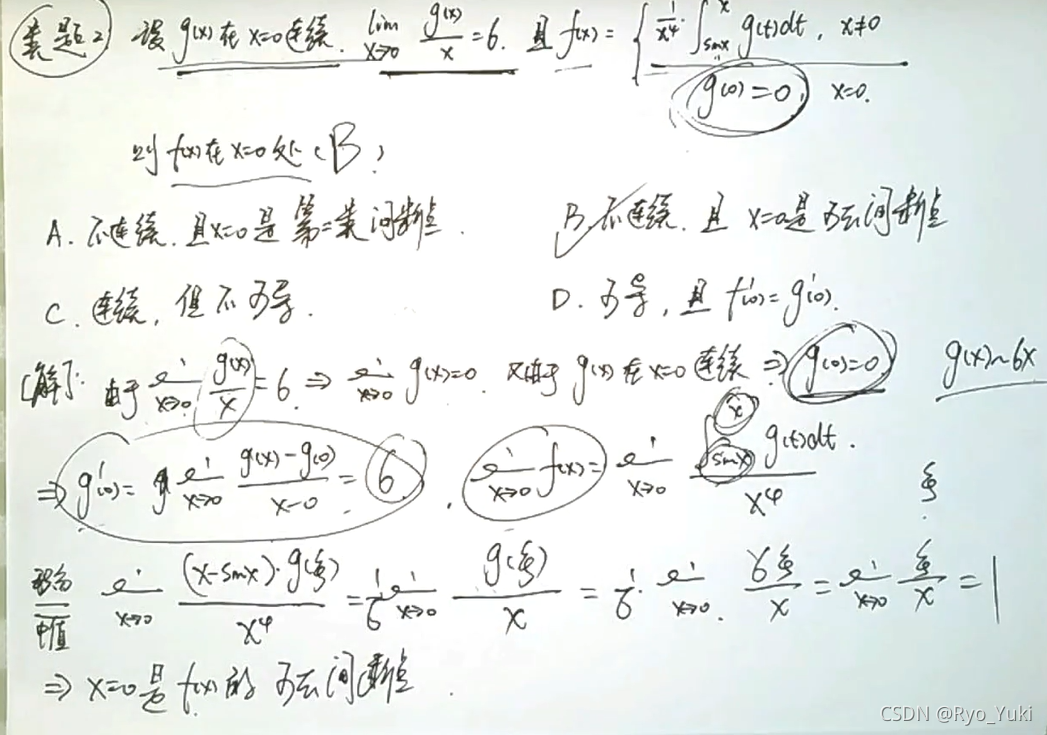 类题2 设g(x)在x=0连续. lim x→0 g(x)/x=6. 且f(x)={ 1/x⁴·∫_sinx^x g(t)dt, x≠0
g(0)=0, x=0.
则f(x)在x=0处(B)
A. 不连续.且x=0是第二类间断点.
B. 不连续.且x=0是可去间断点
C. 连续,但不可导.
D. 可导,且f'(0)=g'(0).
[解]: 由于 lim x→0 g(x)/x=6 ⇒ lim x→0 g(x)=0 又由于g(x)在x=0连续 ⇒ g(0)=0 g(x)~6x
⇒ g'(0)= lim x→0 (g(x)-g(0))/(x-0)=6. lim x→0 f(x)= lim x→0 ∫_sinx^x g(t)dt/x⁴. ξ
积分中值 lim x→0 (x-sinx)·g(ξ)/x⁴ = 1/6 lim x→0 g(ξ)/x = 1/6· lim x→0 6ξ/x = lim x→0 ξ/x =1
⇒ x=0是f(x)的可去间断点.
CSDN @Ryo_Yuki